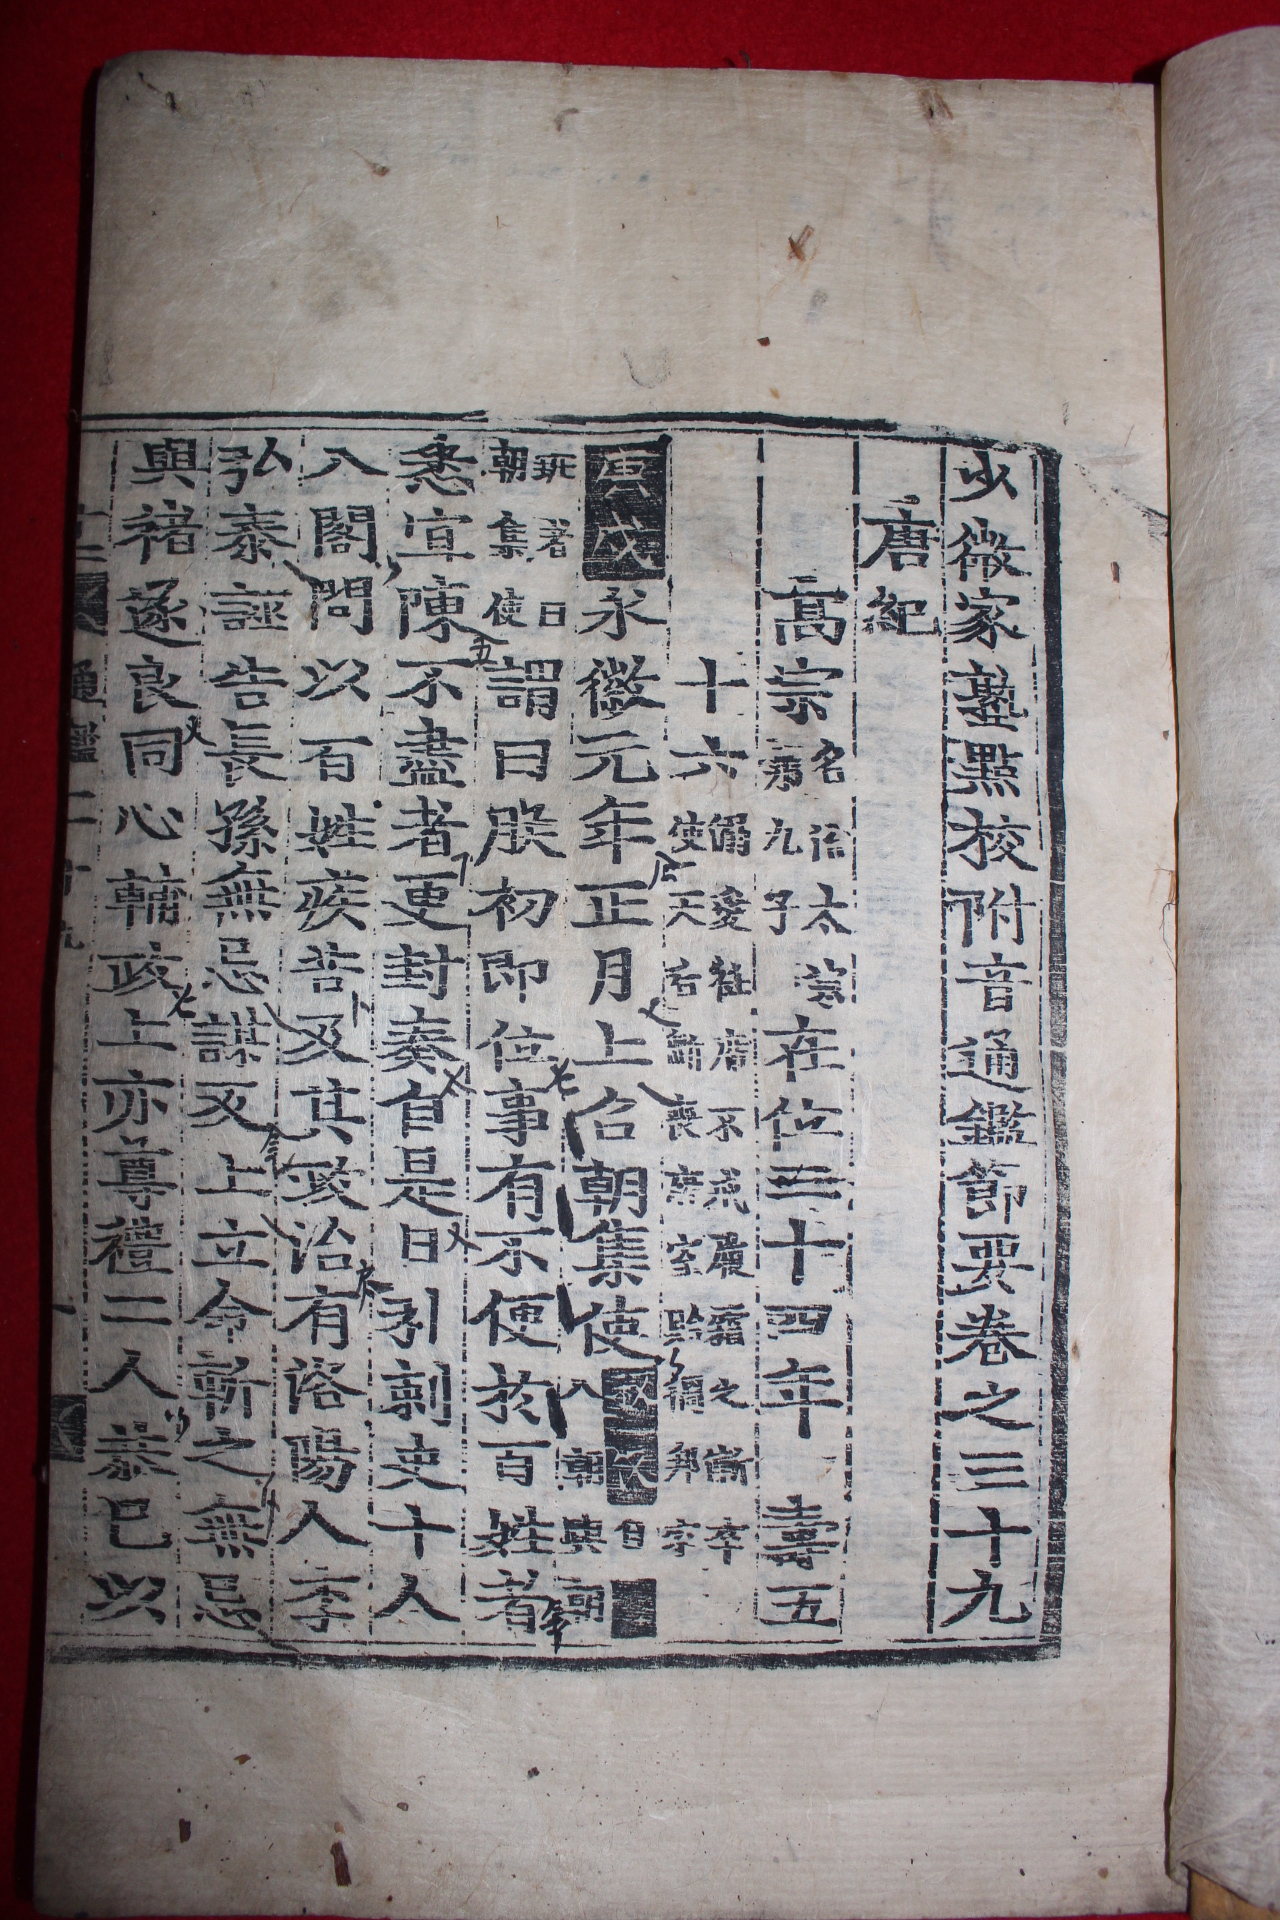 少微家塾點校附音通鑑節要卷之三十九
唐紀
高宗名治太宗第九子在位三十四年 壽五
十六溺愛袵席不戒履霜之漸卒使天后斲喪唐室貽禍邦家
庚戌永徽元年正月上召朝集使自八朝與朝
班者曰朝集使謂曰朕初即位事有不便於百姓者
悉宜陳不盡者更封奏自是日引刺史十人
入閤問以百姓疾苦及其政治有洛陽人李
弘泰誣告長孫無忌謀反上立命斬之無忌
與褚遂良同心輔政上亦尊禮二人恭己以